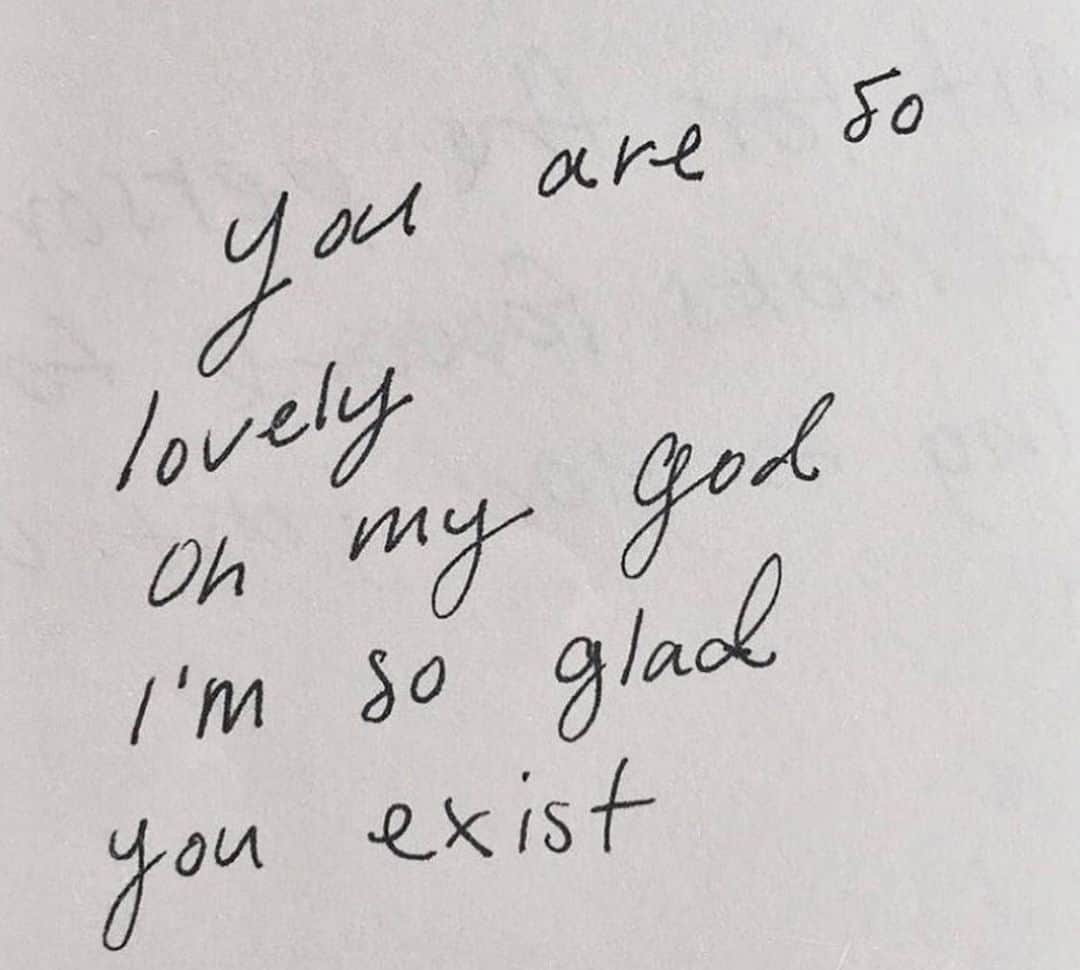 you are so
lovely
Oh my god
I'm so glad
you exist